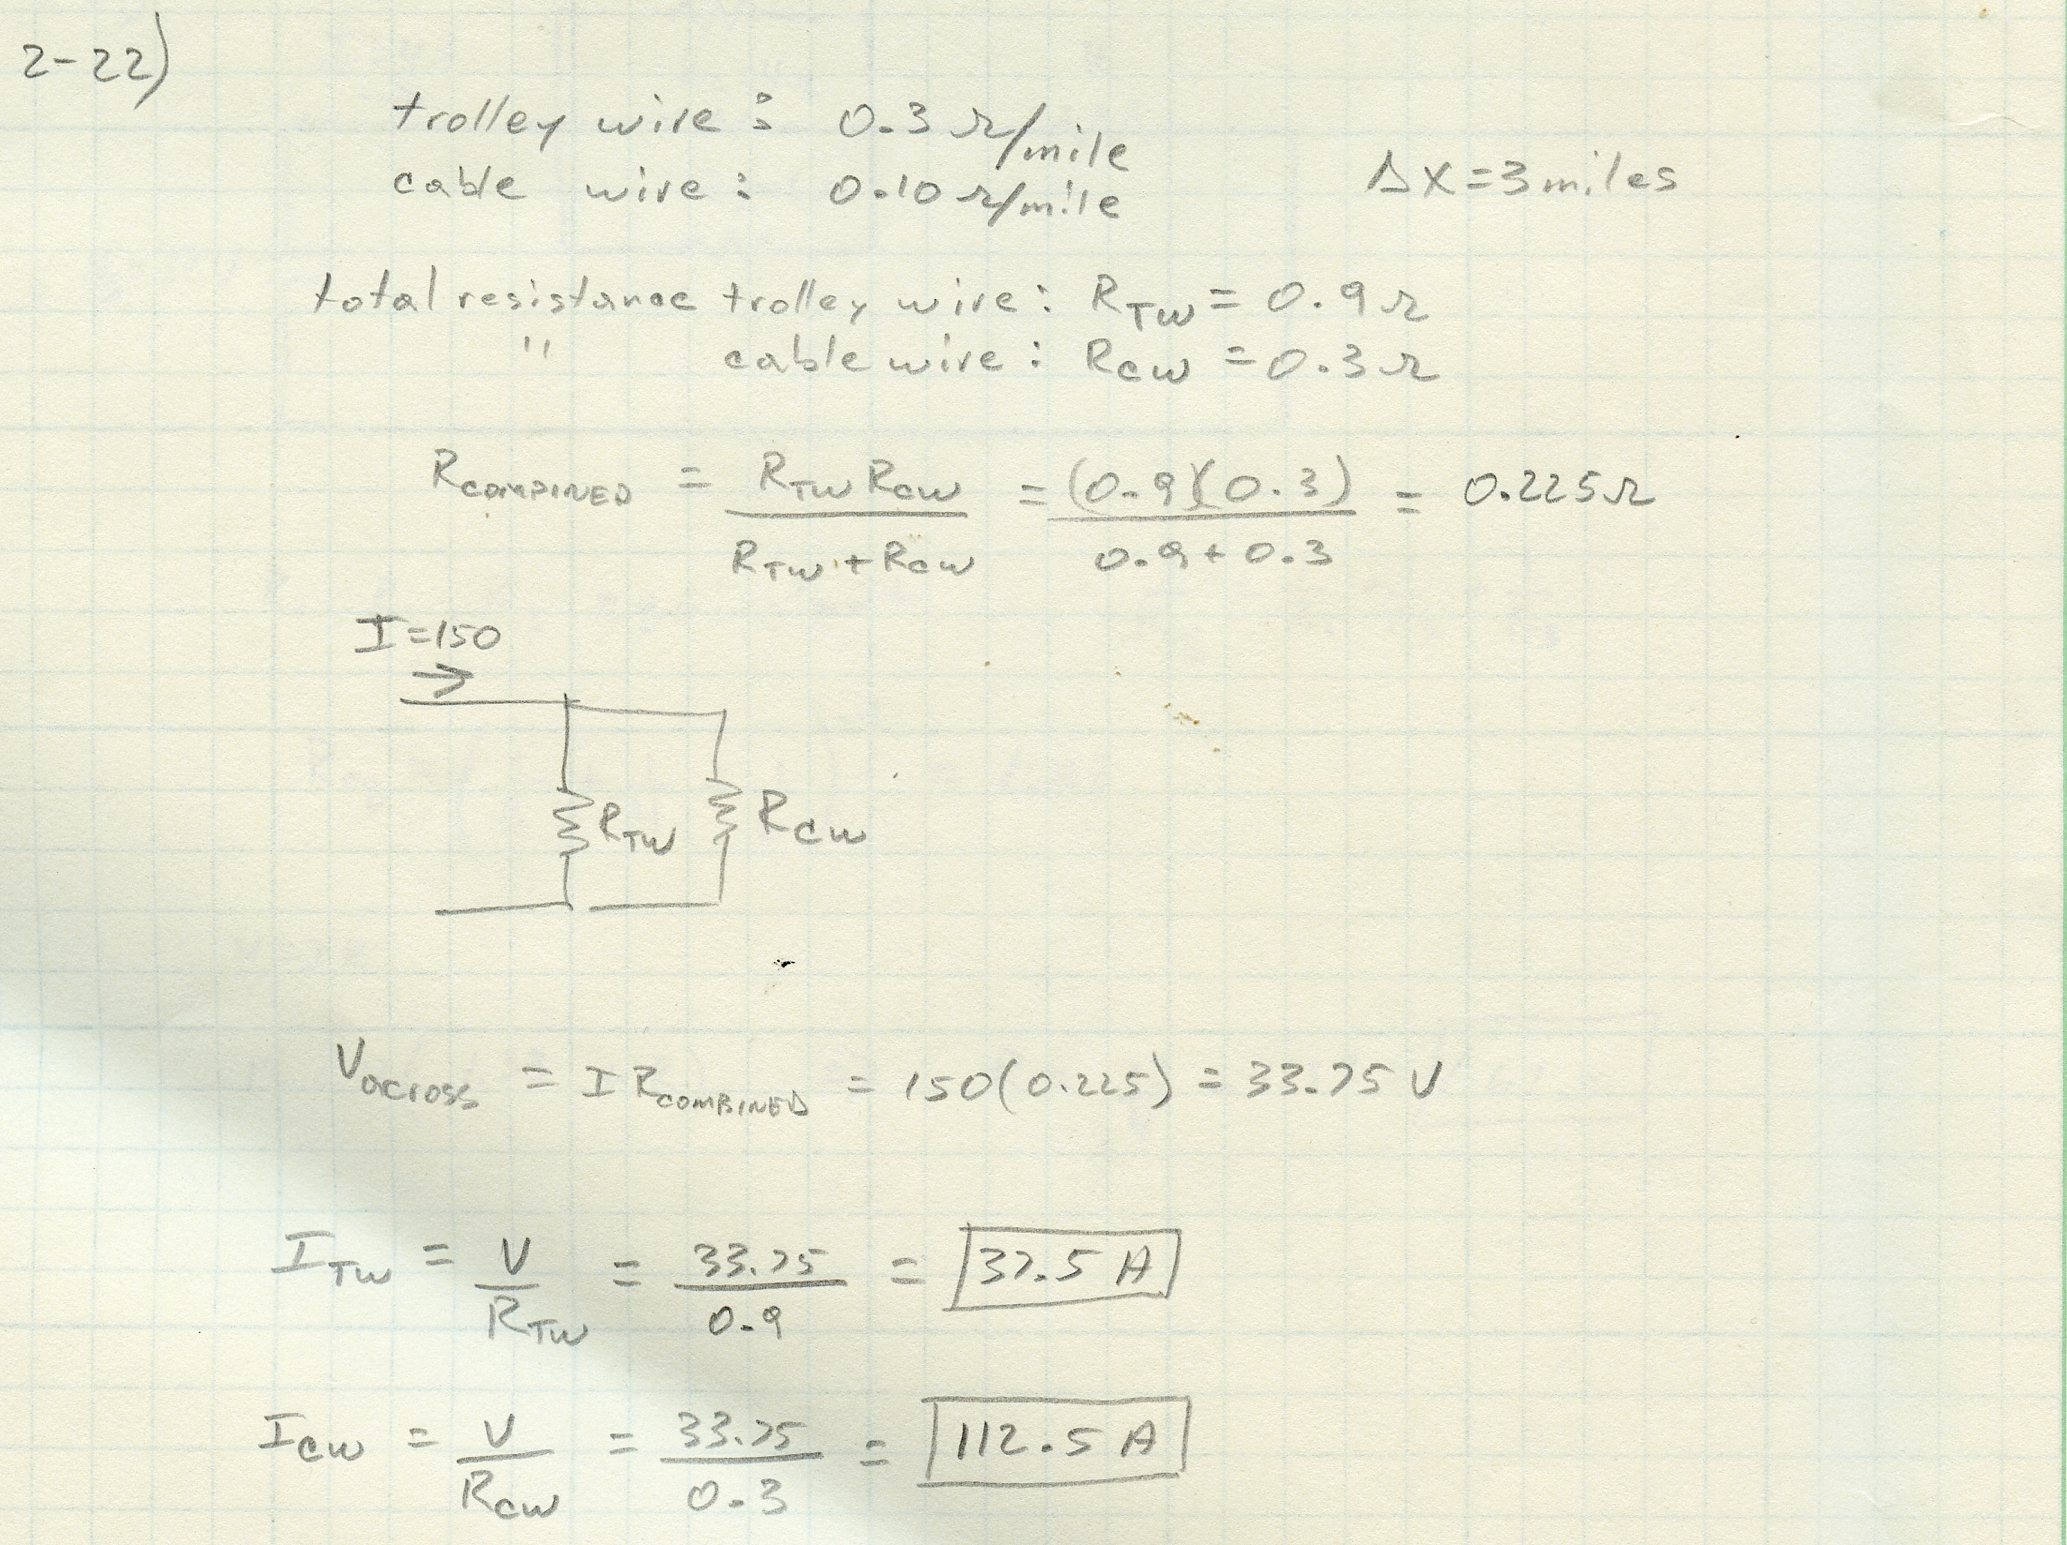 2-22)
trolley wire: 0.3 Ω/mile
cable wire: 0.10 Ω/mile
Δx=3miles
total resistance trolley wire: R_TW = 0.9Ω
" cable wire: R_CW = 0.3Ω
R_COMBINED = R_TW R_CW / R_TW + R_CW = (0.9)(0.3) / 0.9 + 0.3 = 0.225Ω
I=150
→
R_TW R_CW
V_across = I R_COMBINED = 150(0.225) = 33.75 V
I_TW = V / R_TW = 33.75 / 0.9 = 37.5 A
I_CW = V / R_CW = 33.75 / 0.3 = 112.5 A